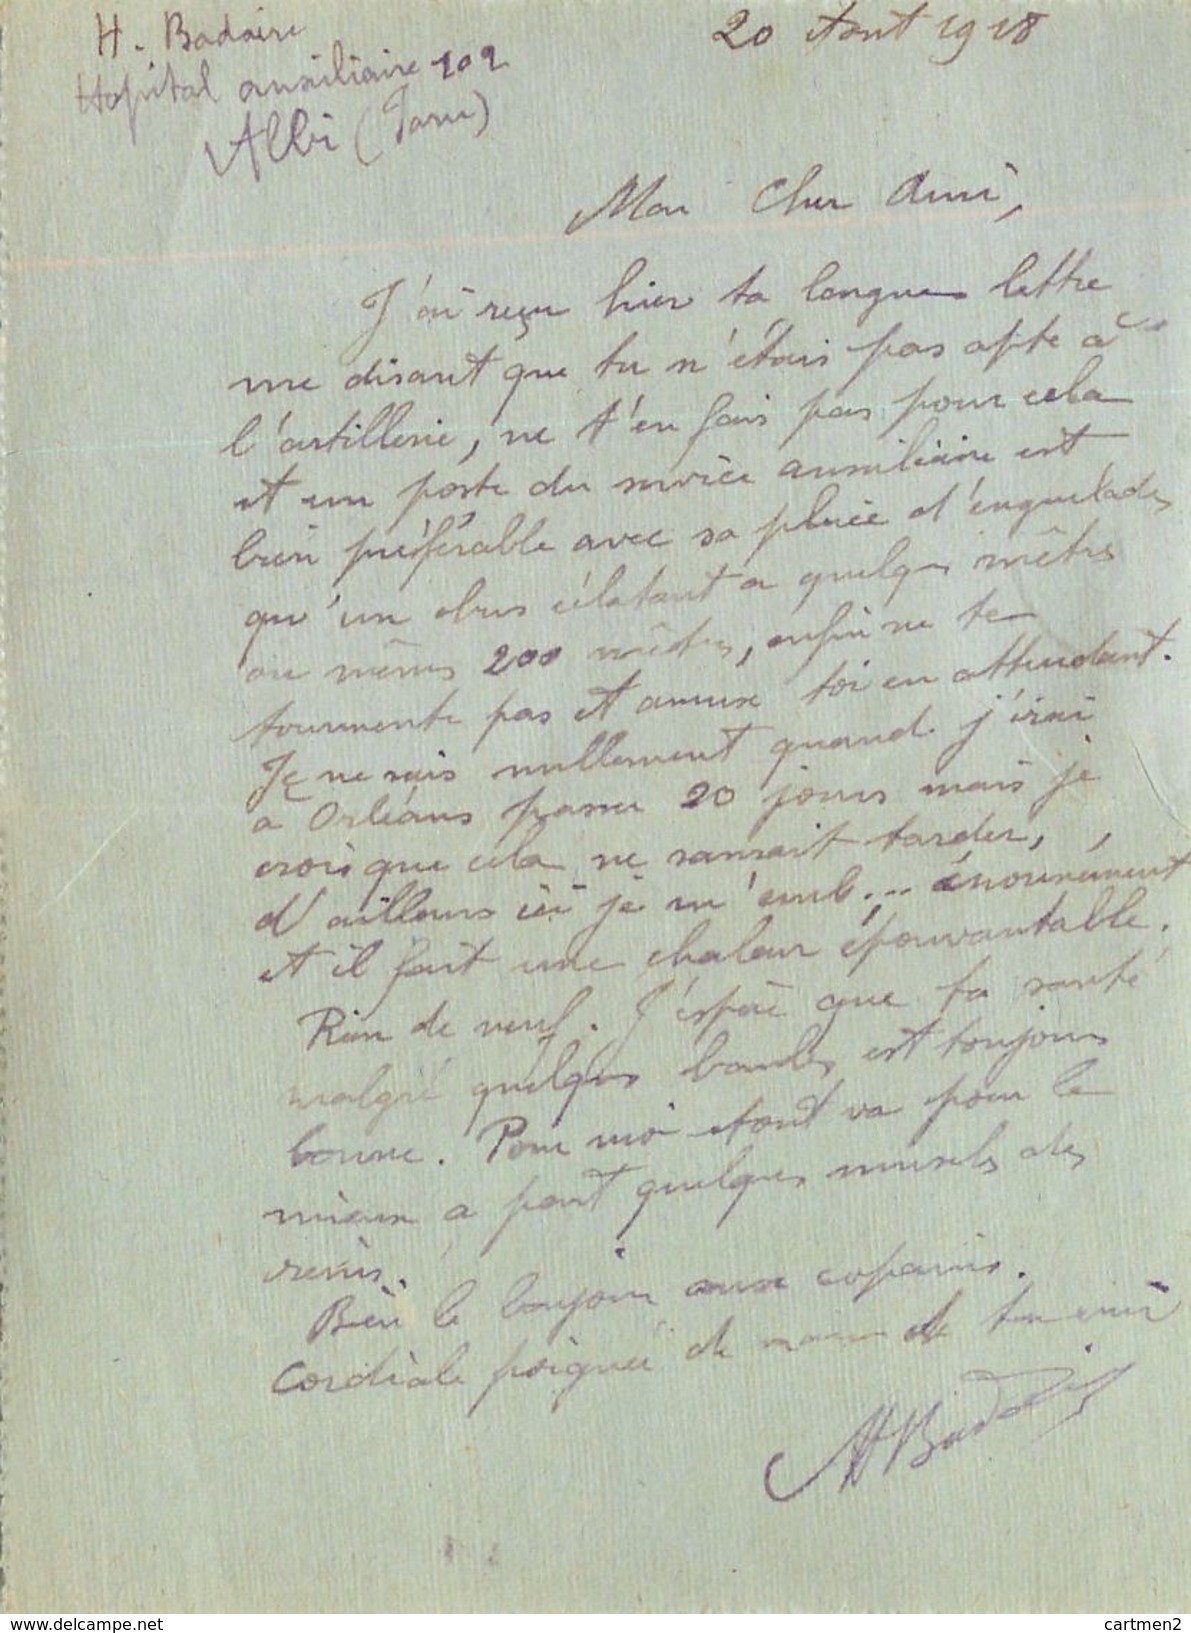 H. Badaire
20 Aout 1918
Hopital auxiliaire 102
Albi (Tarn)
Mon Cher Ami,
J'ai reçu hier ta longue lettre
me disant que tu n'étais pas apte à
l'artillerie, ne t'en fais pas pour cela
et un poste du service auxiliaire est
bien préférable avec sa pluie d'engueulades
qu'un obus éclatant a quelques mètres
ou même 200 mètres, enfin ne te
tourmente pas et amuse toi en attendant.
Je ne sais nullement quand j'irai
a Orléans passer 20 jours mais je
crois que cela ne saurait tarder,
d'ailleurs ici je m'emb... énormément
et il fait une chaleur épouvantable.
Rien de neuf. J'espère que ta santé
malgré quelques bombes est toujours
bonne. Pour moi tout va pour le
mieux a part quelques muscles des
reins.
Bien le bonjour aux copains.
Cordiale poignée de main de ton ami
HBadaire
cartmen2